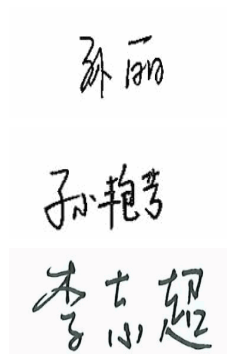 孙丽
孙小艳芳
李志超